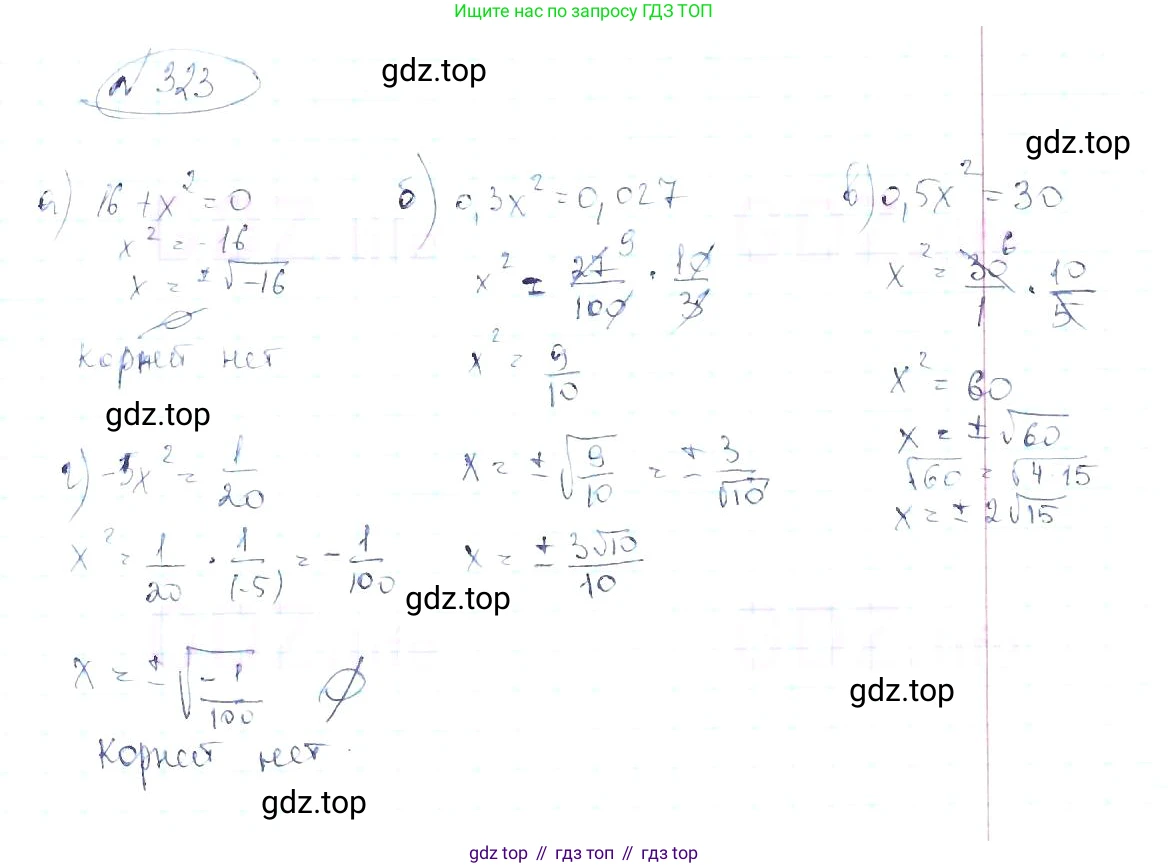 Ищите нас по запросу ГДЗ ТОП
№ 323
gdz.top
gdz.top
а) 16 + x² = 0
x² = -16
x = ±√-16
∅
Корней нет
gdz.top
б) 0,3x² = 0,027
x² = 27/100 · 10/3 9
x² = 9/10
x = ±√9/10 = ± 3/√10
x = ± 3√10/10
в) 0,5x² = 30
x² = 30/1 · 10/5 6
x² = 60
x = ±√60
√60 = √4·15
x = ± 2√15
г) -5x² = 1/20
x² = 1/20 · 1/(-5) = - 1/100
gdz.top
x = ±√-1/100 ∅
Корней нет
gdz.top
gdz.top
gdz top // гдз топ // гдз top